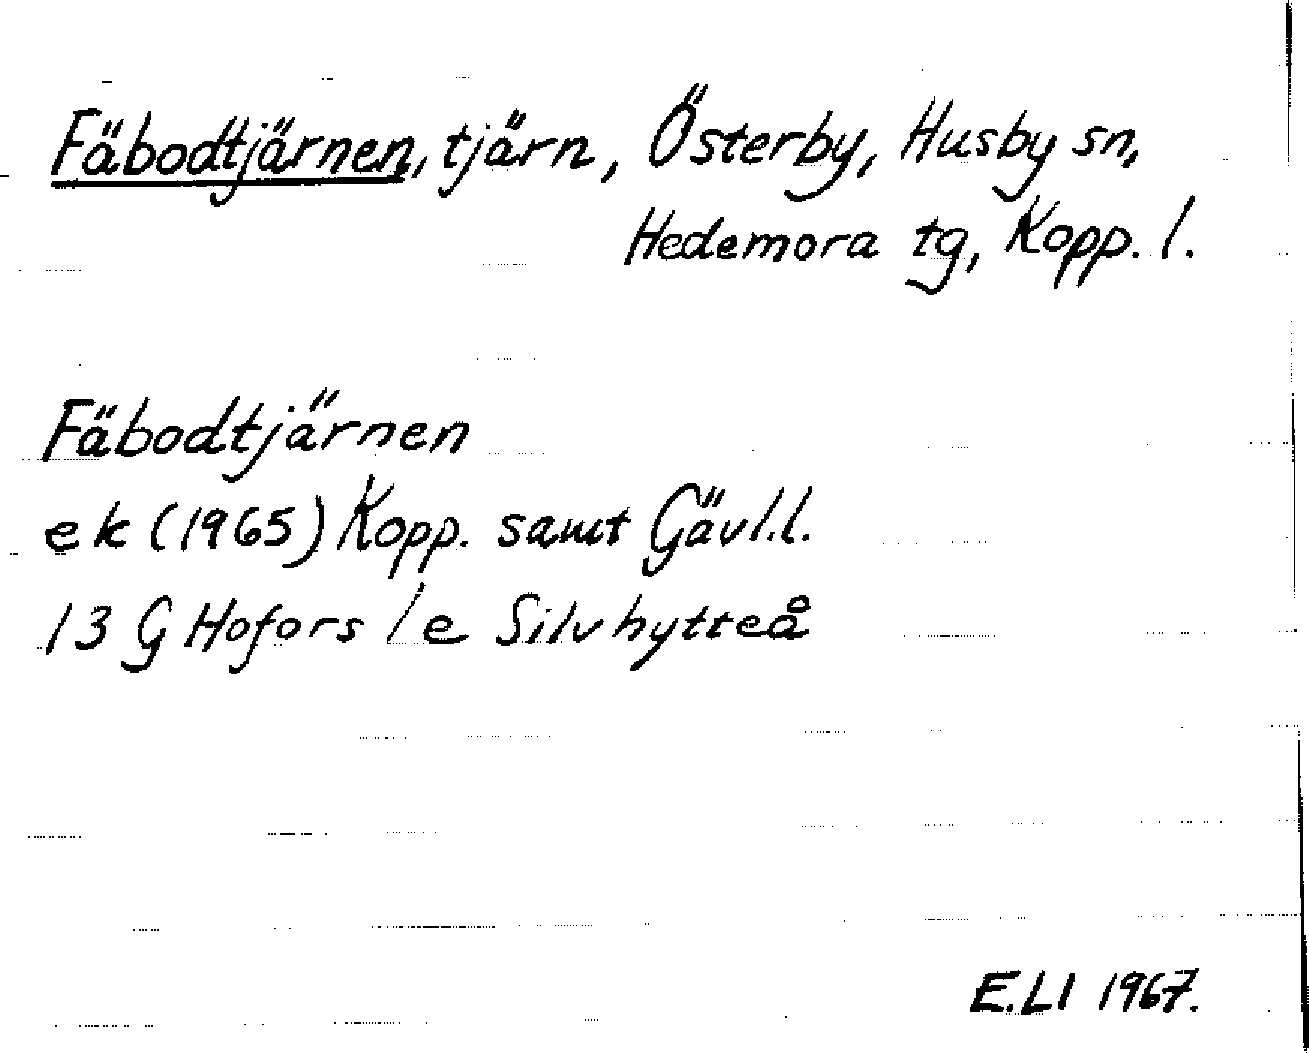 Fäbodtjärnen, tjärn, Österby, Husby sn,
Hedemora tg, Kopp. l.
Fäbodtjärnen
ek (1965) Kopp. samt Gävl.l.
13 G Hofors l e Silvhytteå
E.Ll 1967.